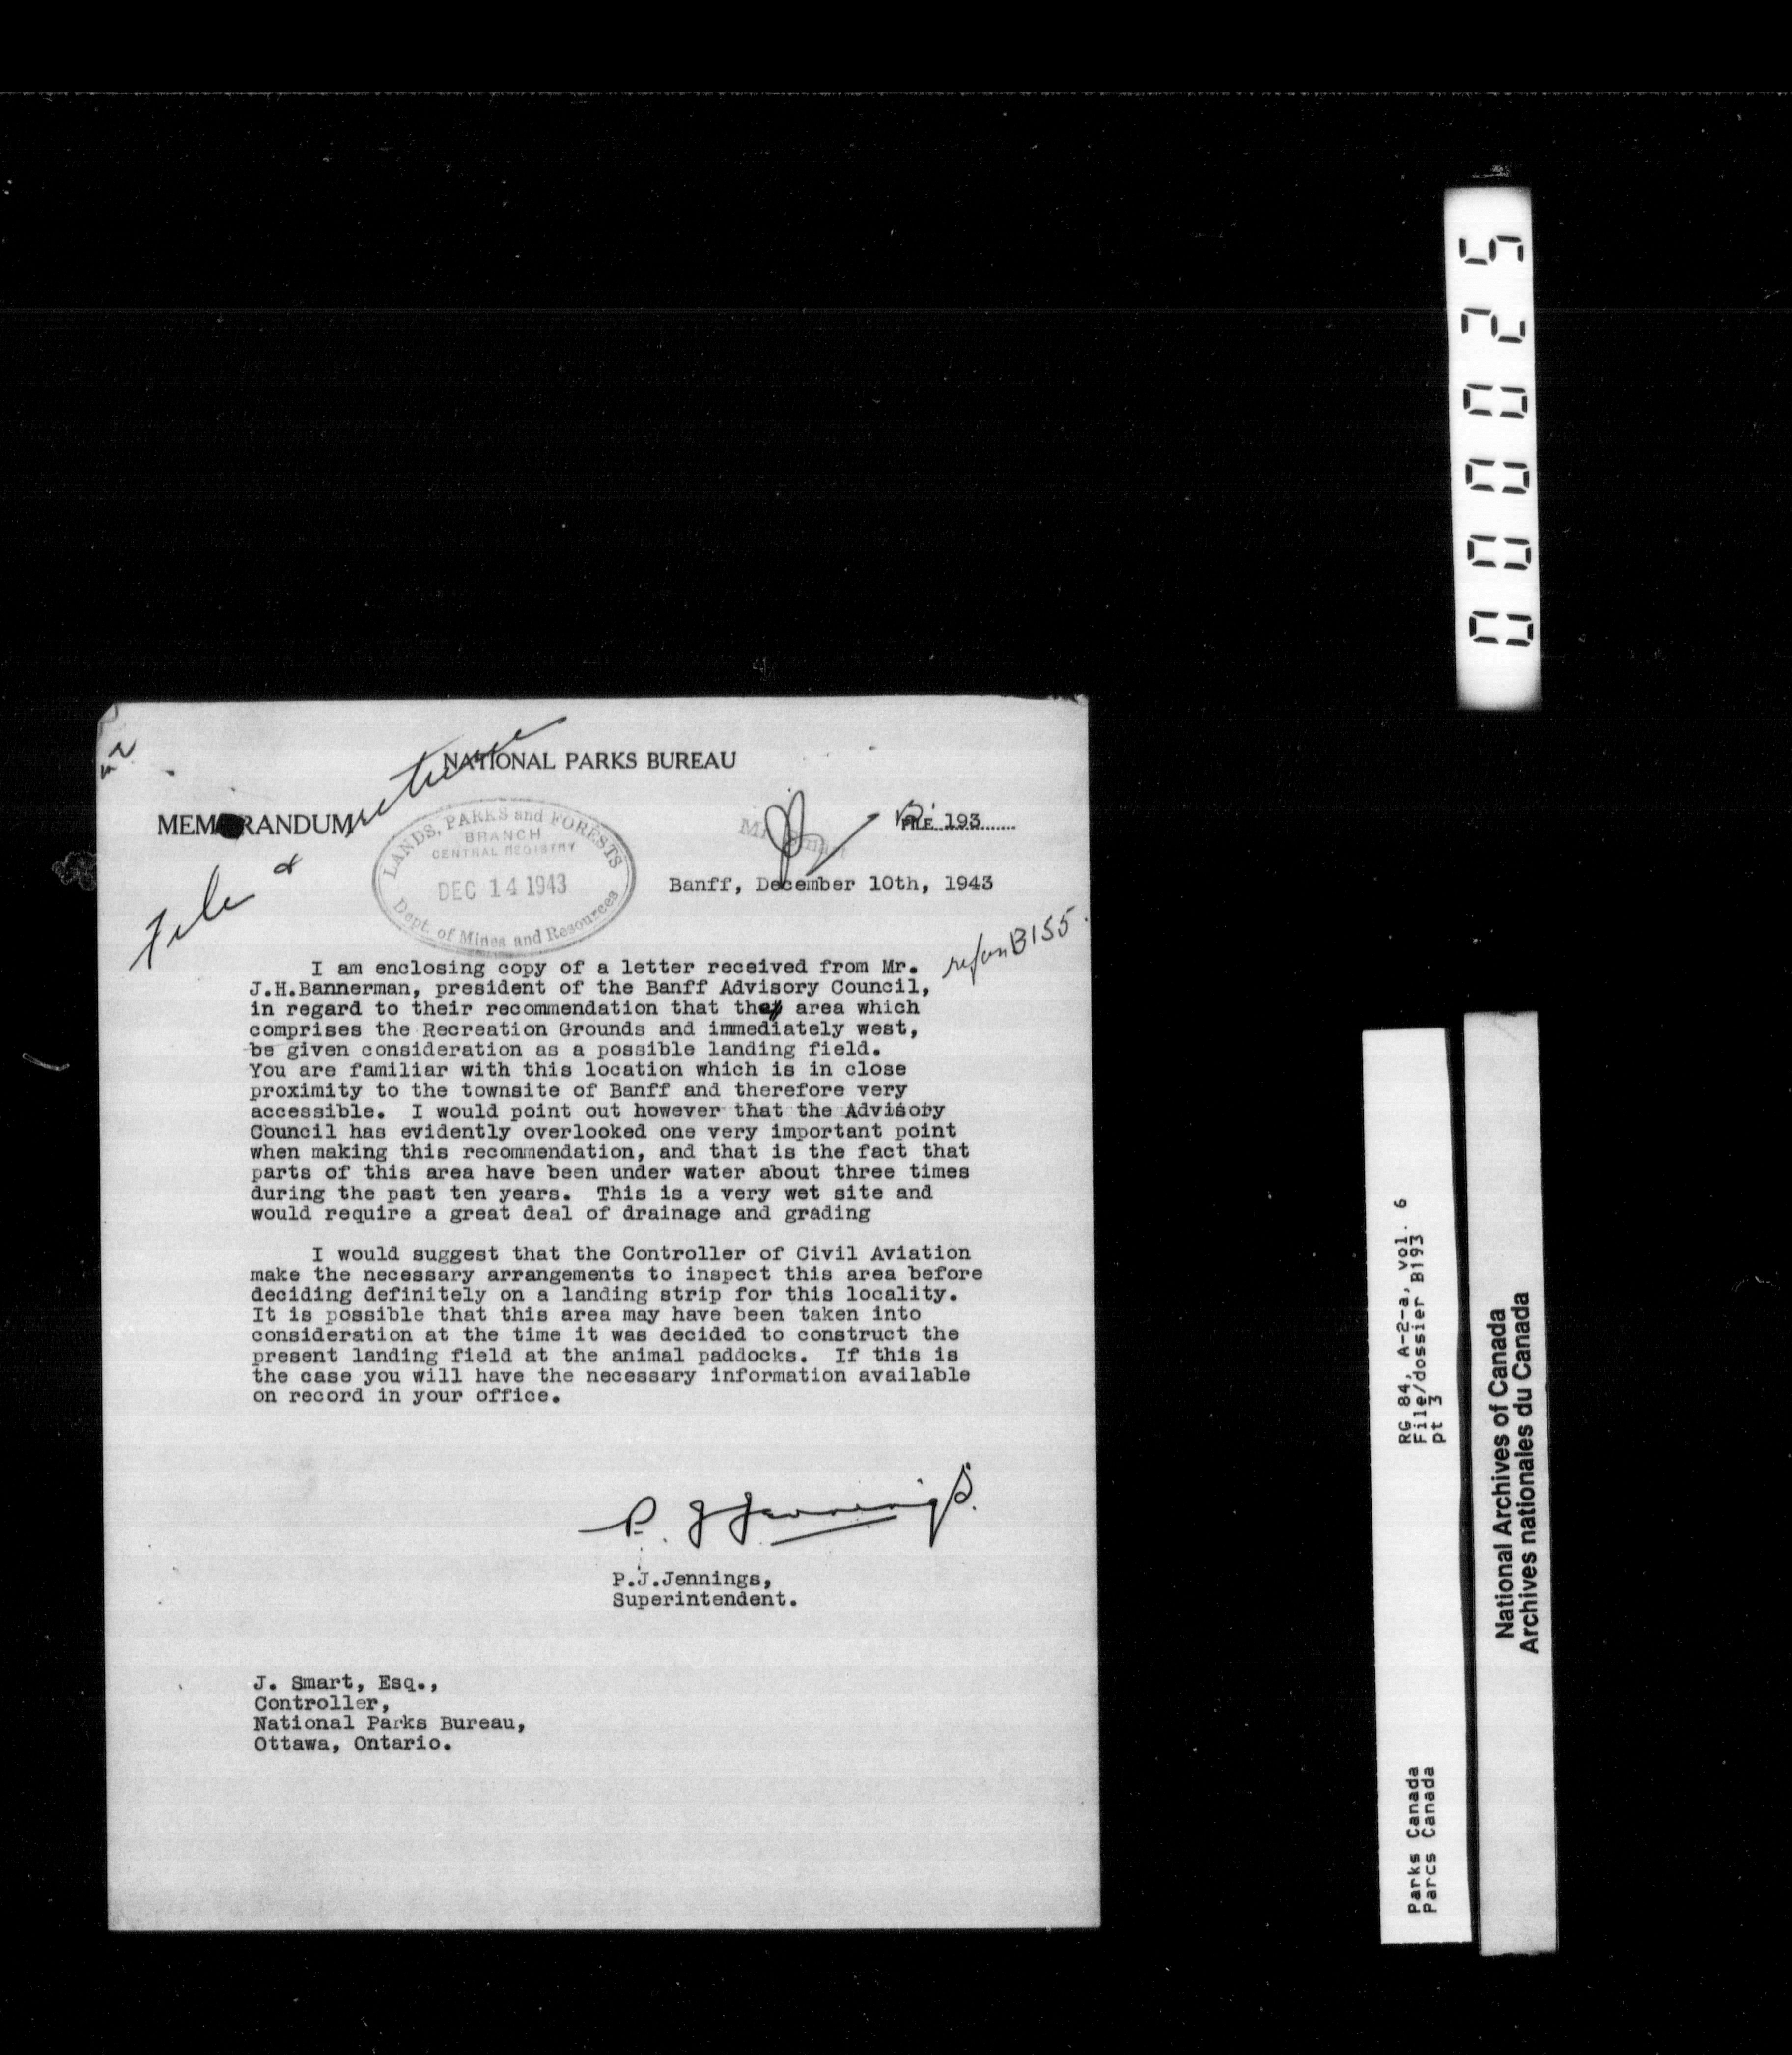 NATIONAL PARKS BUREAU
MEMORANDUM
File &
LANDS, PARKS and FORESTS
BRANCH
CENTRAL REGISTRY
DEC 14 1943
Dept. of Mines and Resources
Mr. Smart
FILE B 193
Banff, December 10th, 1943
B155.
I am enclosing copy of a letter received from Mr.
J.H.Bannerman, president of the Banff Advisory Council,
in regard to their recommendation that the area which
comprises the Recreation Grounds and immediately west,
be given consideration as a possible landing field.
You are familiar with this location which is in close
proximity to the townsite of Banff and therefore very
accessible. I would point out however that the Advisory
Council has evidently overlooked one very important point
when making this recommendation, and that is the fact that
parts of this area have been under water about three times
during the past ten years. This is a very wet site and
would require a great deal of drainage and grading
I would suggest that the Controller of Civil Aviation
make the necessary arrangements to inspect this area before
deciding definitely on a landing strip for this locality.
It is possible that this area may have been taken into
consideration at the time it was decided to construct the
present landing field at the animal paddocks. If this is
the case you will have the necessary information available
on record in your office.
P. J Jennings.
P.J.Jennings,
Superintendent.
J. Smart, Esq.,
Controller,
National Parks Bureau,
Ottawa, Ontario.
000025
RG 84, A-2-a, vol. 6
File/dossier B193
pt 3
Parks Canada
Parcs Canada
National Archives of Canada
Archives nationales du Canada